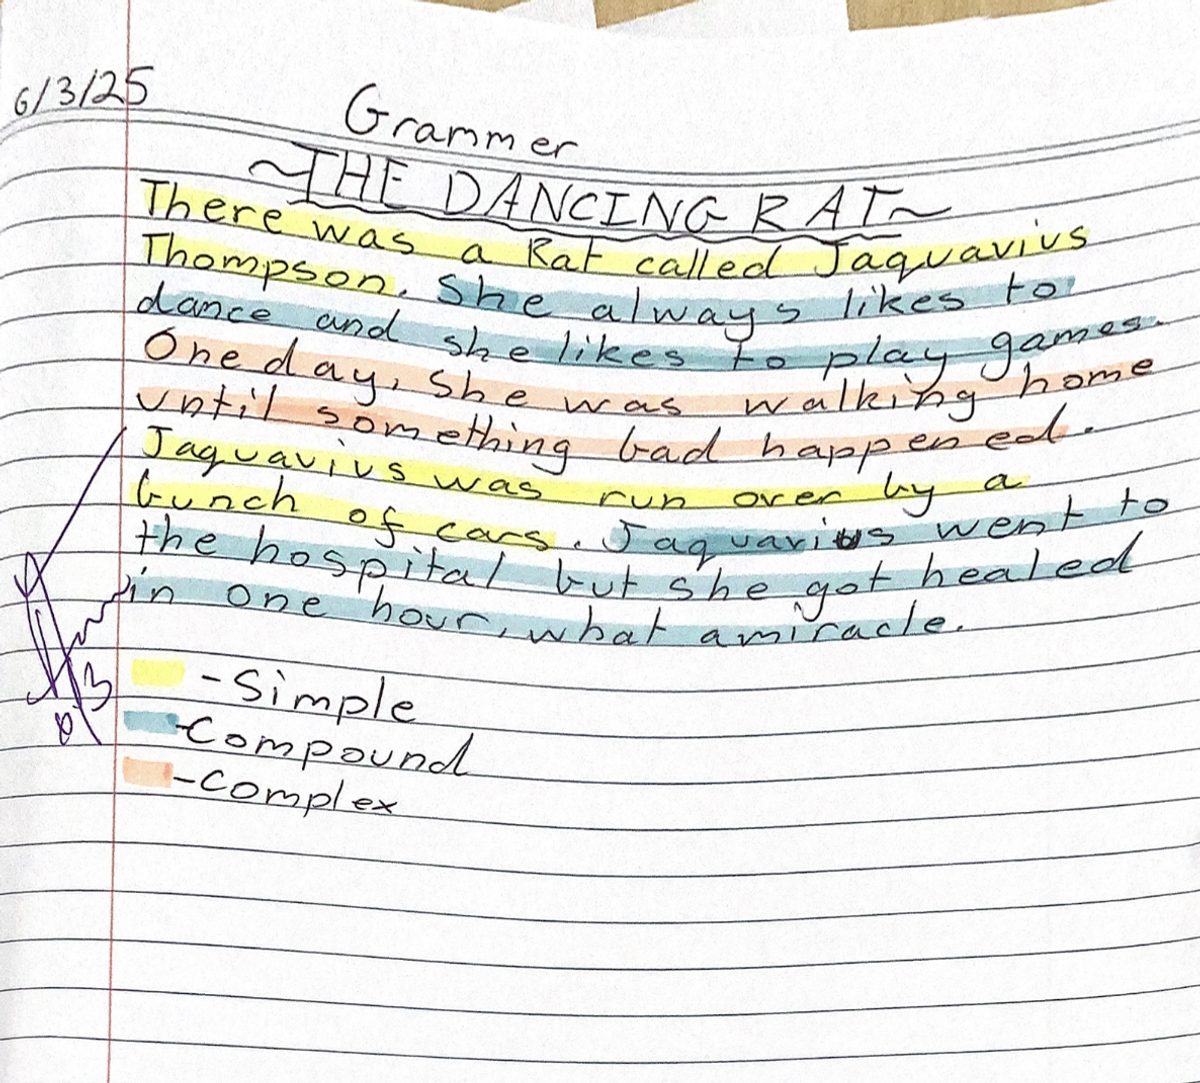 6/3/25
Grammer
~THE DANCING RAT~
There was a Rat called Jaquavius
Thompson. She always likes to
dance and she likes to play games.
One day, she was walking home
until something bad happened.
Jaquavius was run over by a
bunch of cars. Jaquavius went to
the hospital but she got healed
in one hour, what a miracle.
-Simple
-Compound
-Complex